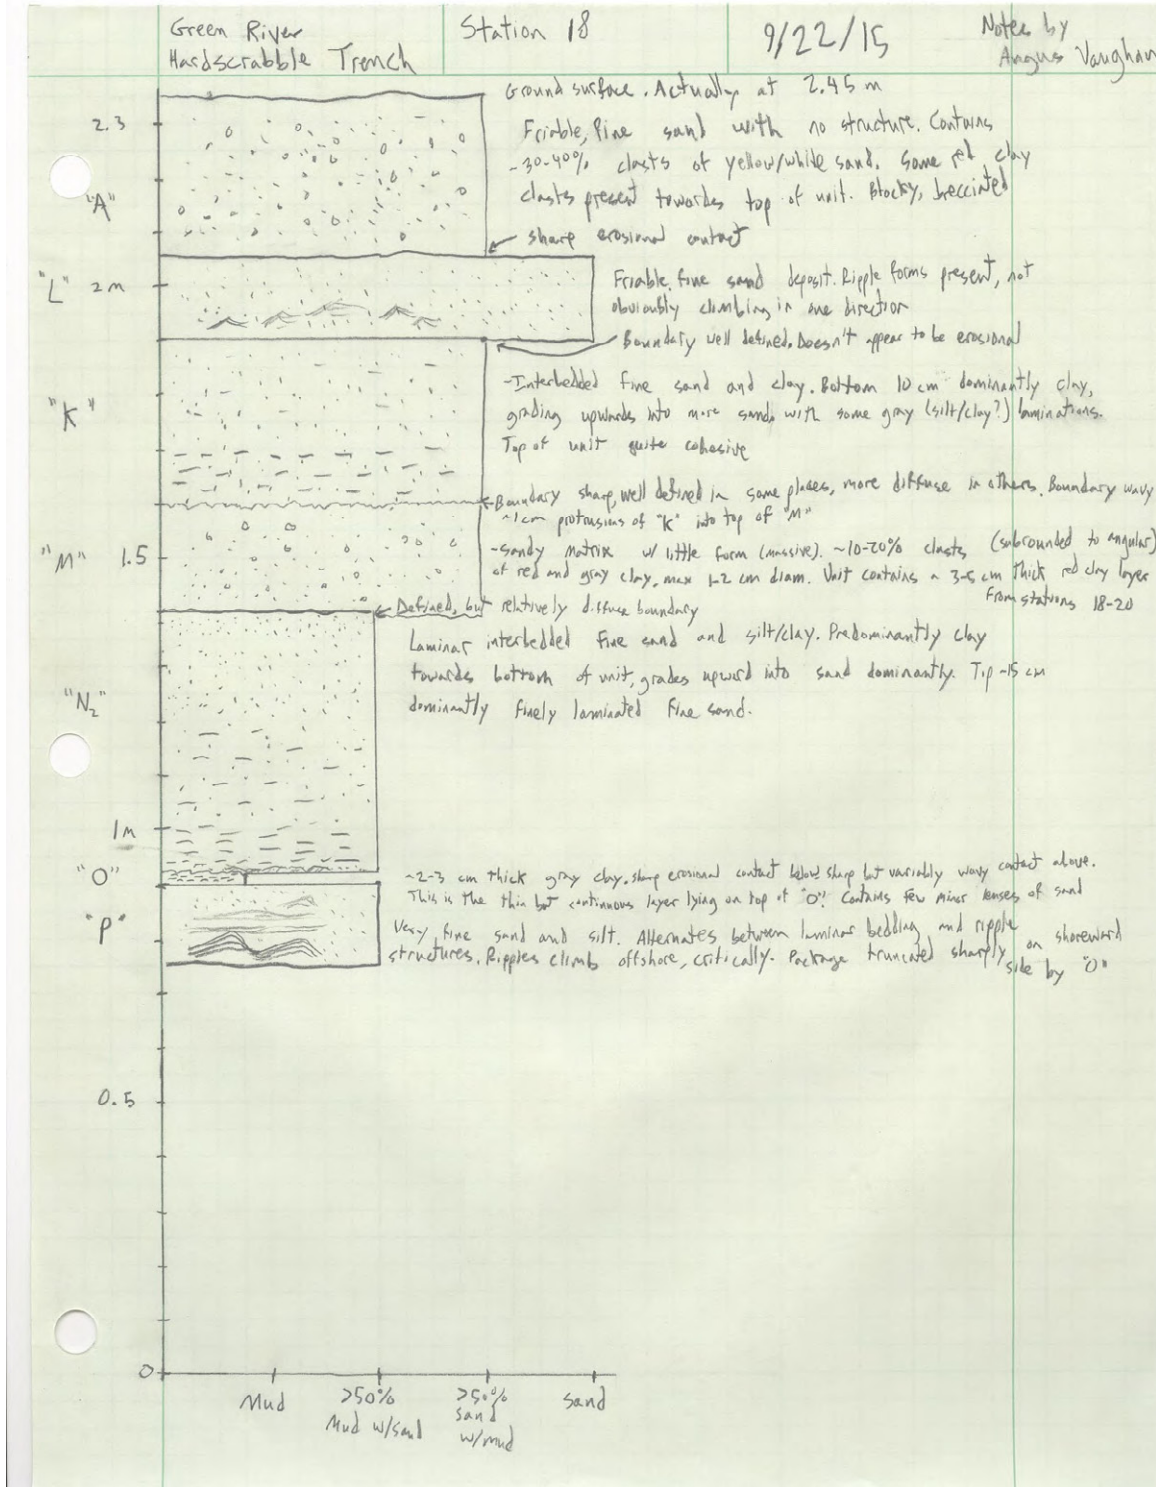 Green River
Hardscrabble Trench
Station 18
9/22/15
Notes by
Angus Vaughan
Ground surface. Actually at 2.45 m
2.3
Friable, fine sand with no structure. Contains
~30-40% clasts of yellow/white sand. Some red clay
clasts present towardes top of unit. Blocky, brecciated
"A"
sharp erosional contact
"L" 2m
Friable, fine sand deposit. Ripple forms present, not
obviously climbing in one direction
Boundary well defined. Doesn't appear to be erosional
"K"
-Interbedded fine sand and clay. Bottom 10 cm dominantly clay,
grading upwards into more sand, with some gray (silt/clay?) laminations.
Top of unit quite cohesive
Boundary sharp, well defined in some places, more diffuse in others. Boundary wavy
~1cm protrusions of "K" into top of "M"
"M" 1.5
-Sandy matrix w/ little form (massive). ~10-20% clasts (subrounded to angular)
of red and gray clay, max 1-2 cm diam. Unit contains ~ 3-5 cm thick red clay layer
from stations 18-20
Defined, but relatively diffuse boundary
Laminar interbedded fine sand and silt/clay. Predominantly clay
towards bottom of unit, grades upward into sand dominantly. Top ~15 cm
dominantly finely laminated fine sand.
"N₂"
1m
"O"
~2-3 cm thick gray clay. sharp erosional contact below sharp but variably wavy contact above.
This is the thin but continuous layer lying on top of "O". Contains few minor lenses of sand
"P"
Very fine sand and silt. Alternates between laminar bedding and ripple
structures. Ripples climb offshore, critically. Package truncated sharply on shoreward
side by "O"
0.5
0
Mud
>50%
Mud w/sand
>50%
sand
w/mud
Sand